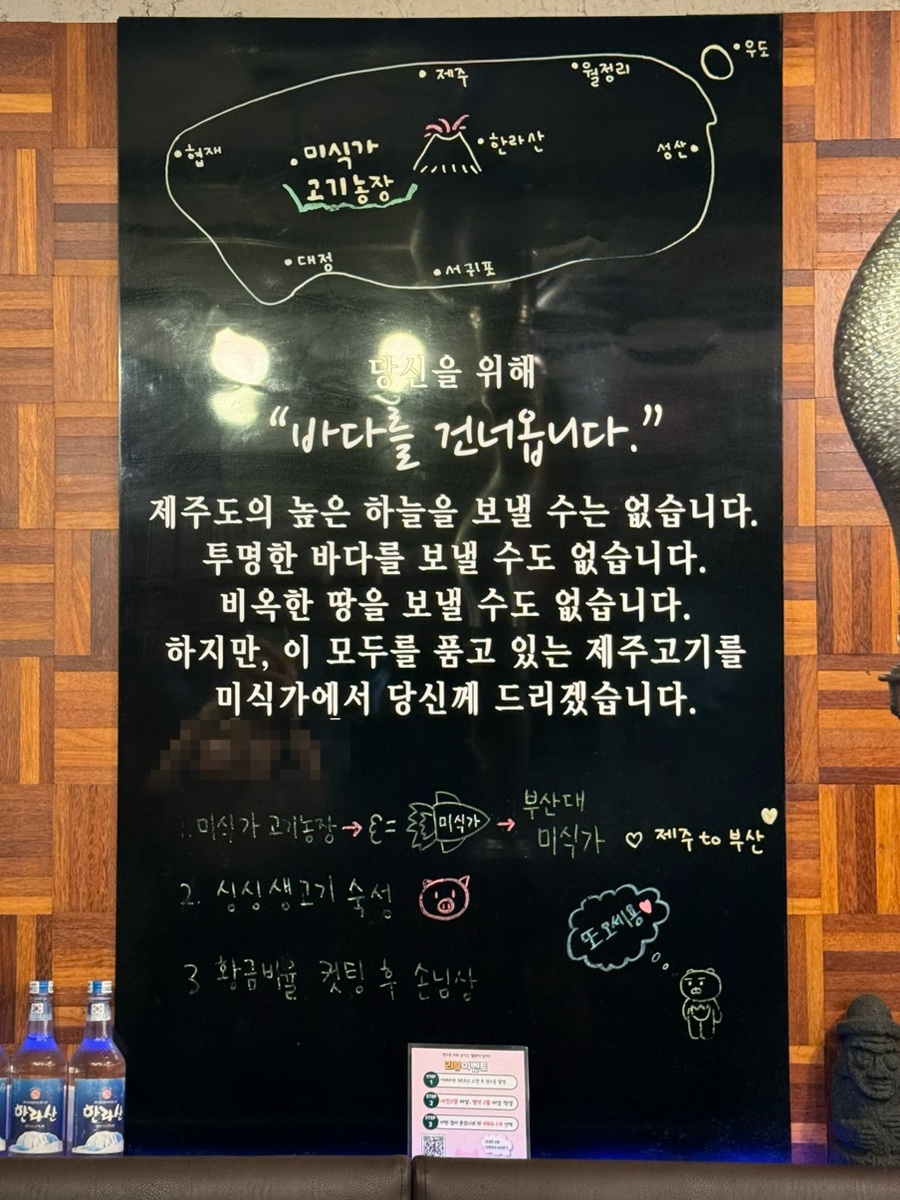 우도
제주
월정리
한라산
협재
성산
미식가
고기농장
대정
서귀포
당신을 위해
“바다를 건너옵니다.”
제주도의 높은 하늘을 보낼 수는 없습니다.
투명한 바다를 보낼 수도 없습니다.
비옥한 땅을 보낼 수도 없습니다.
하지만, 이 모두를 품고 있는 제주고기를
미식가에서 당신께 드리겠습니다.
1. 미식가 고기농장 → 미식가 → 부산대 미식가 ♡ 제주 to 부산
2. 싱싱생고기 숙성
또 오세용
3 황금비율 컷팅 후 손님상
한라산
한라산
리뷰이벤트
STEP 1
STEP 2
STEP 3